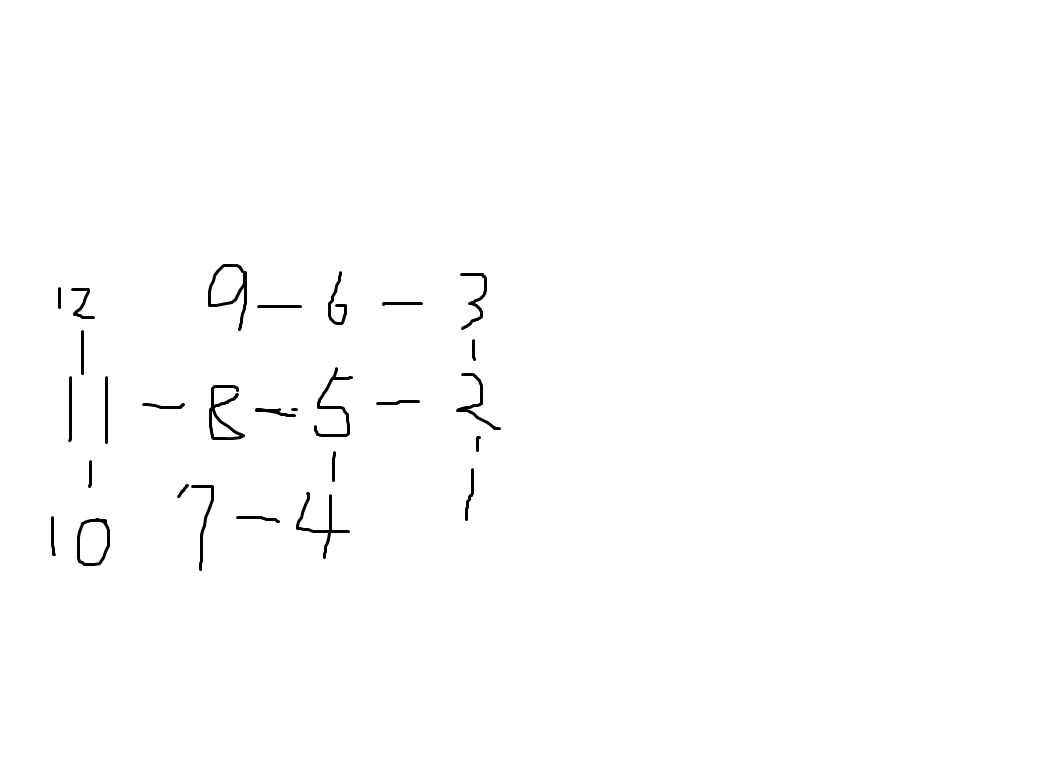 12 9 - 6 - 3
11 - 8 - 5 - 2
10 7 - 4 1